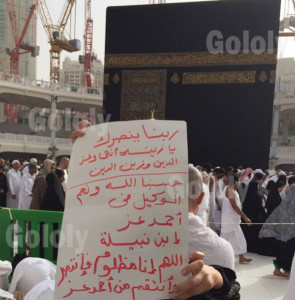 Gololy
Gololy
Gololy
Gololy
ربنا ينصرك
يا زينة انتى وعز
الدين وزين الدين
حسبنا الله ونعم
الوكيل فى
أحمد عز
لابن نبيلة
اللهم انا مظلوم فإنتصر
وأنتقم من أحمد عز